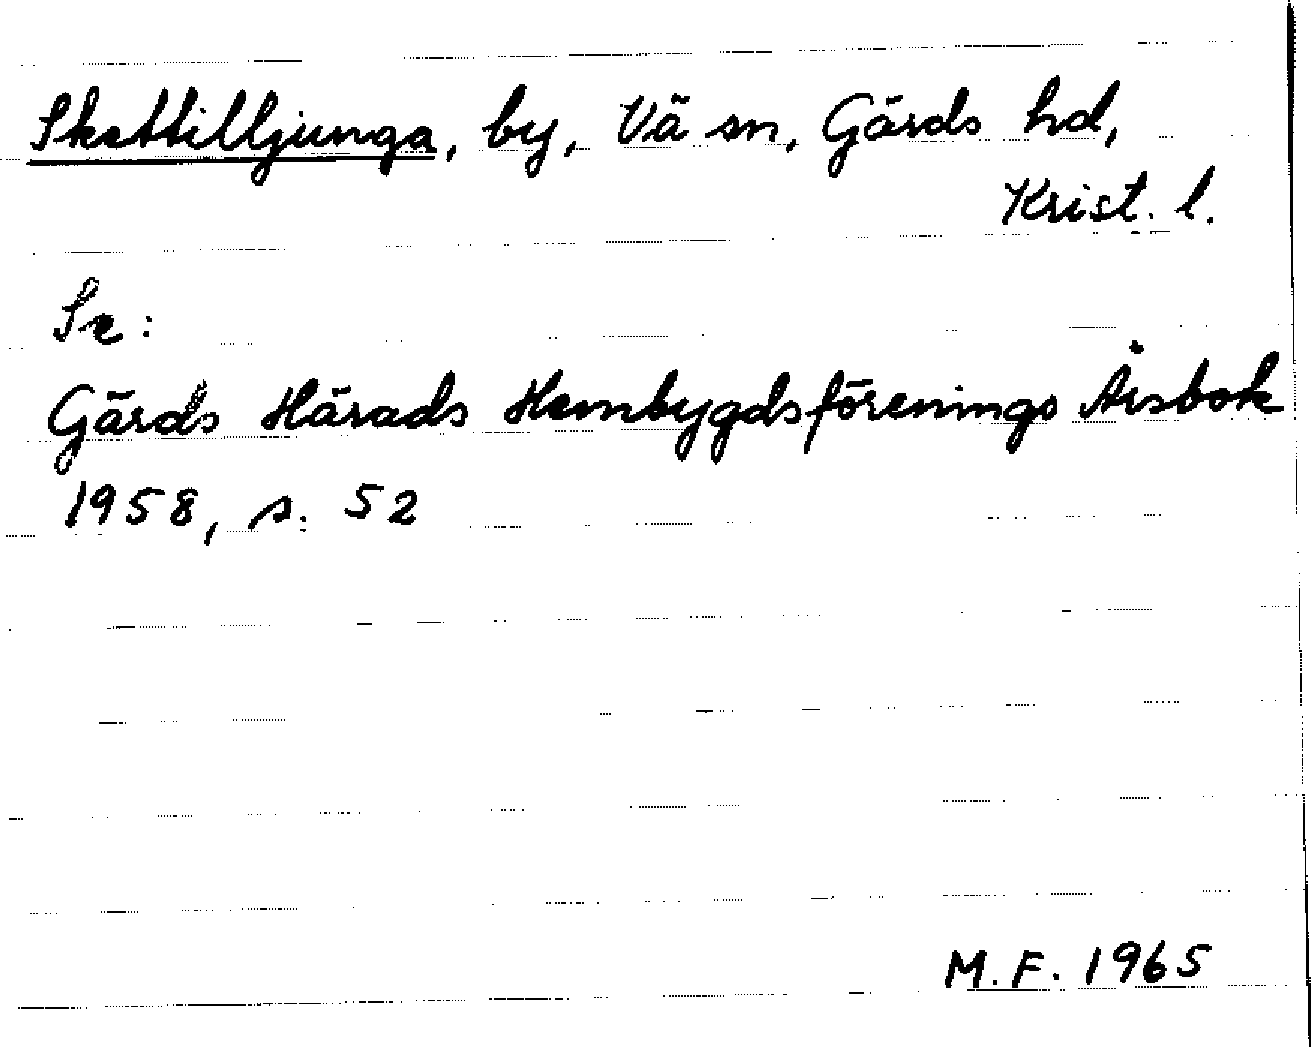 Skattilljunga, by, Vä sn, Gärds hd,
Krist. l.
Se:
Gärds Härads Hembygdsförenings Årsbok
1958, s. 52
M.F. 1965